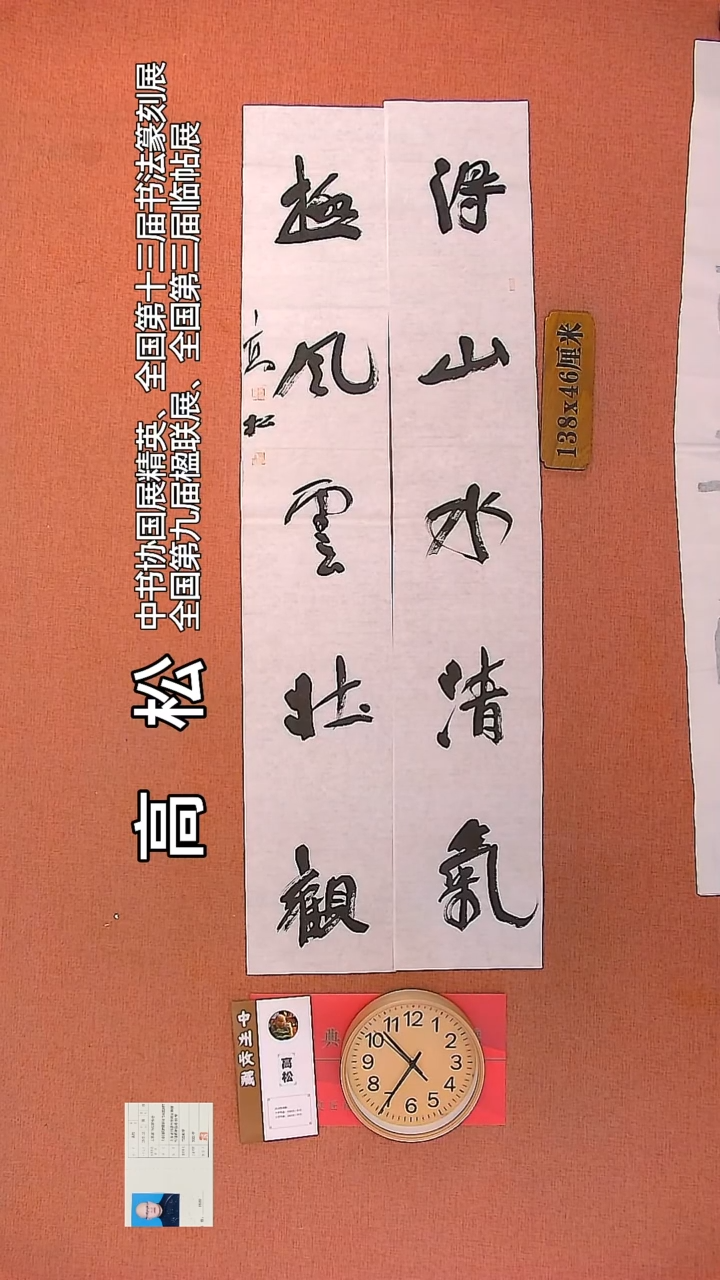 中书协国展精英、全国第十三届书法篆刻展
全国第九届楹联展、全国第三届临帖展
高 松
得山水清氣
極風雲壯觀
高松
138x46厘米
高松
典
12
1
2
3
4
5
6
7
8
9
10
11